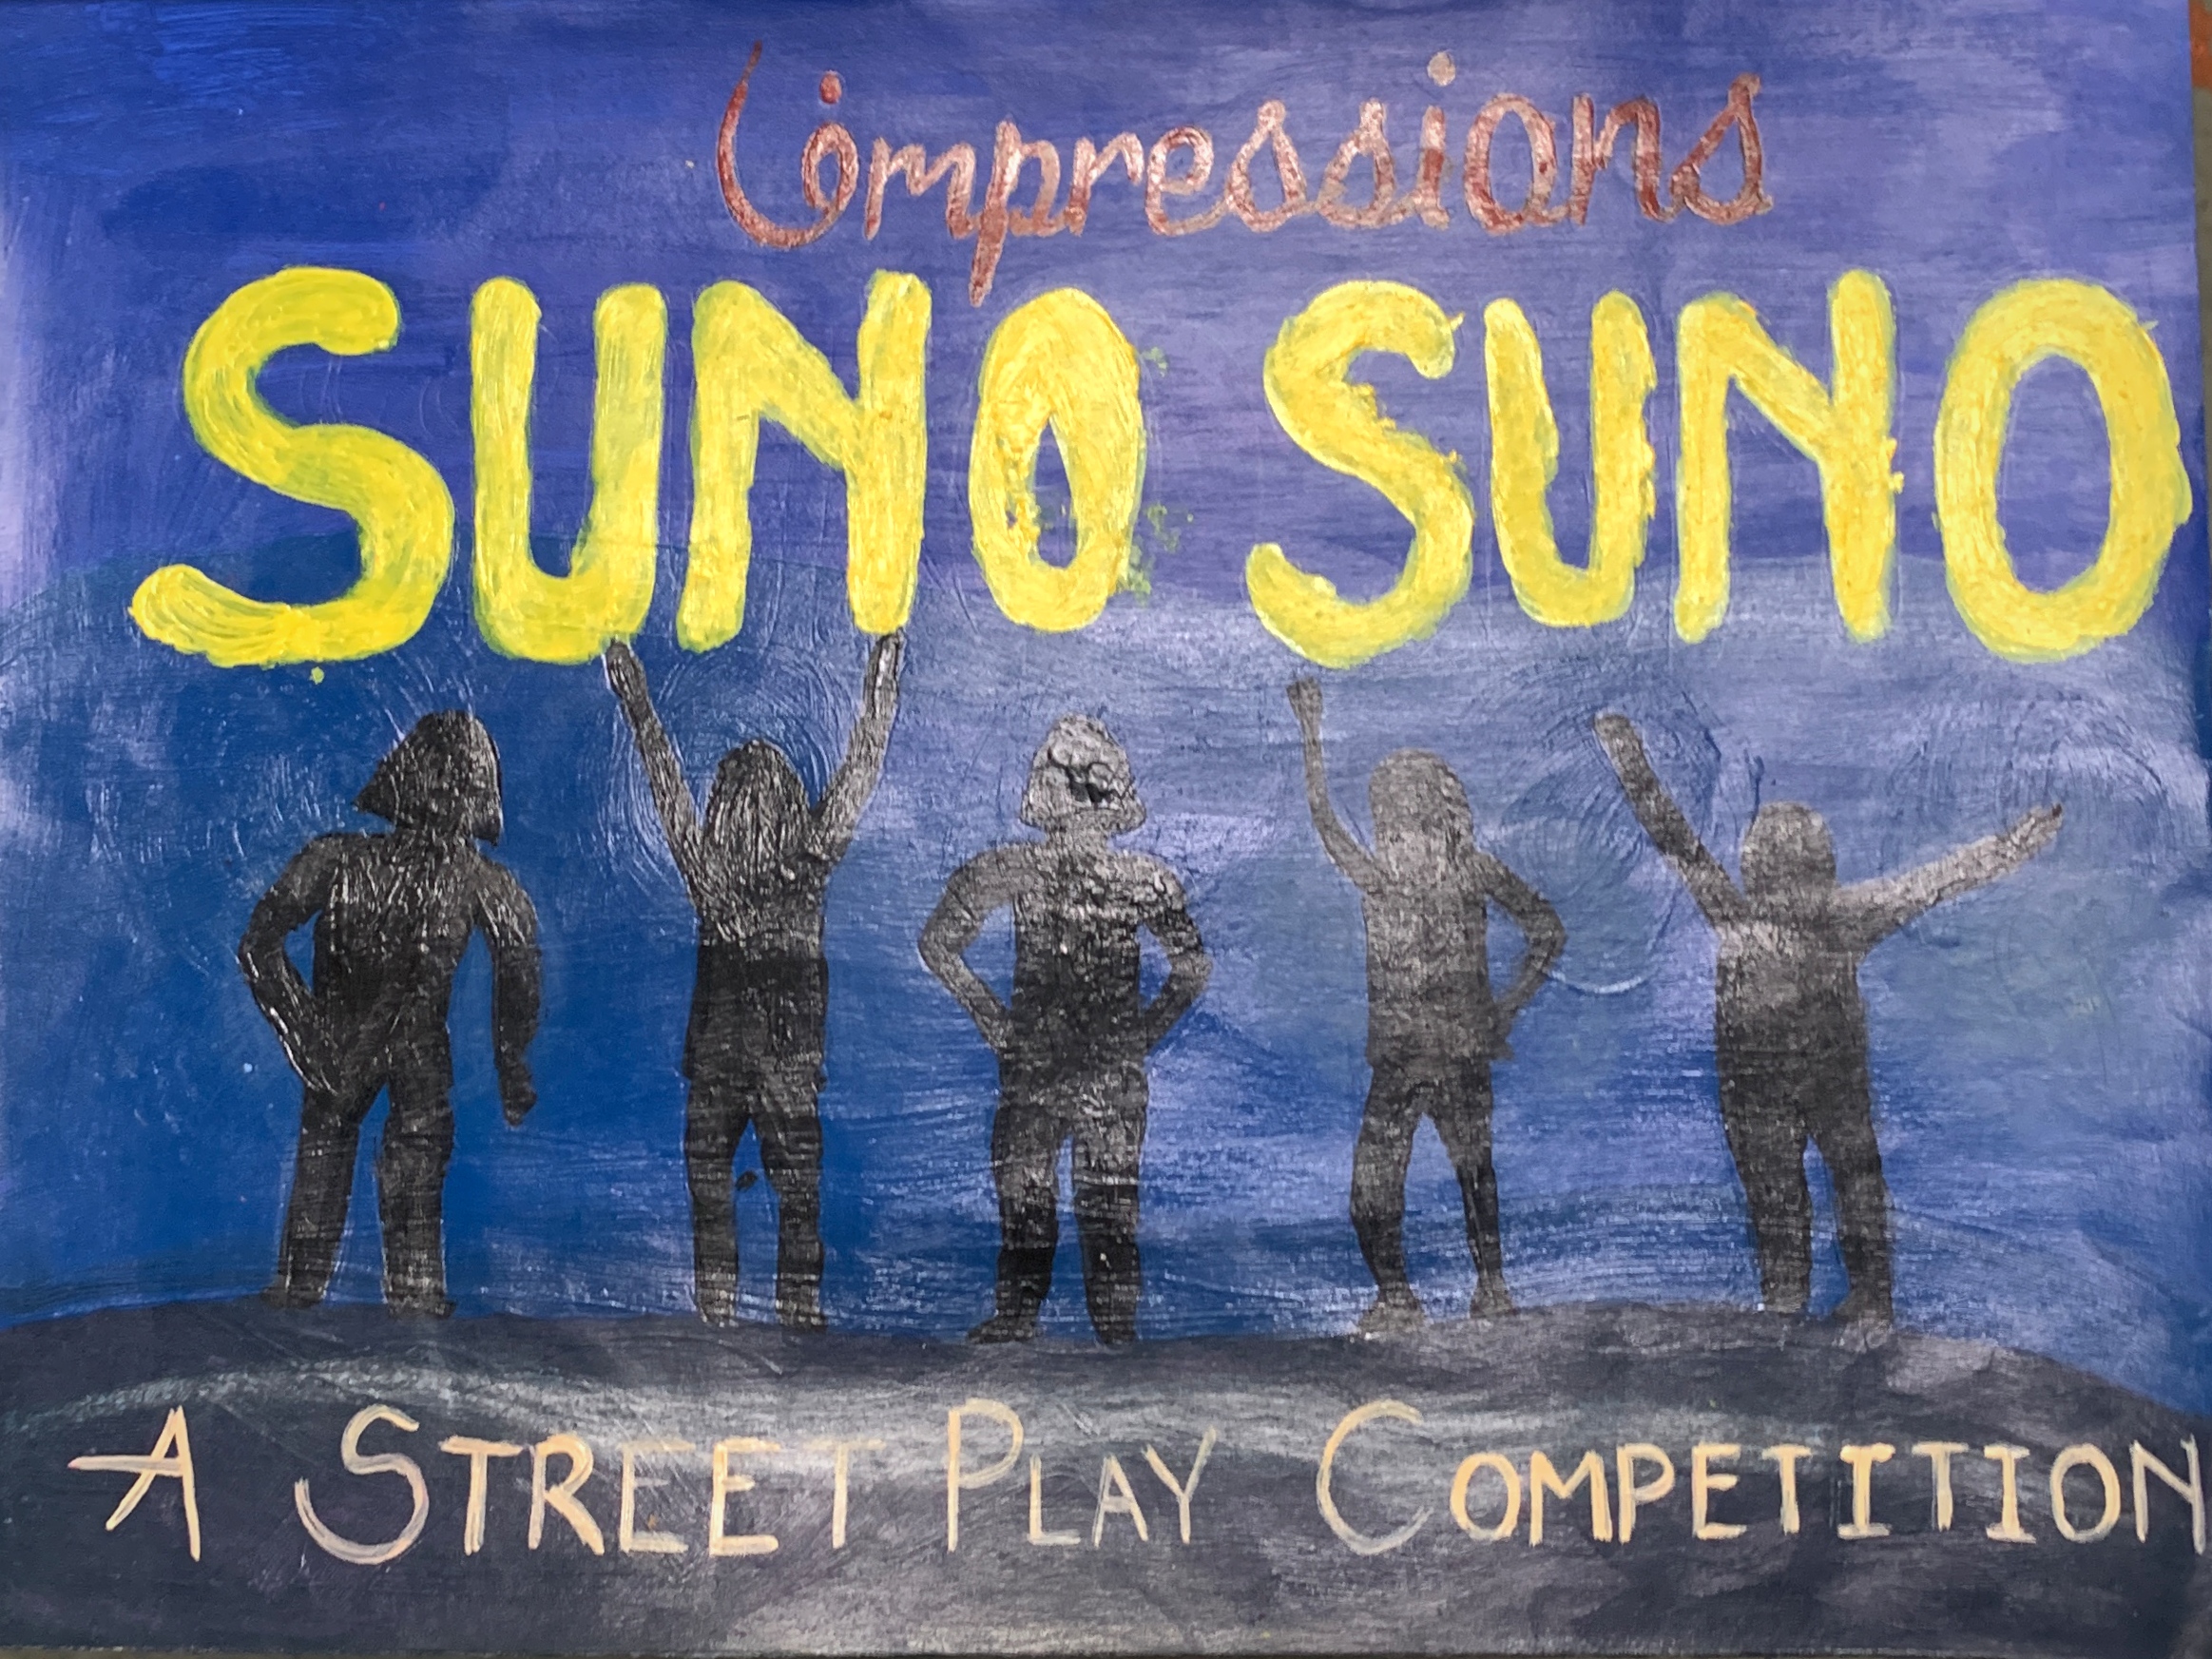 Compressions
SUNO SUNO
A STREET PLAY COMPETITION